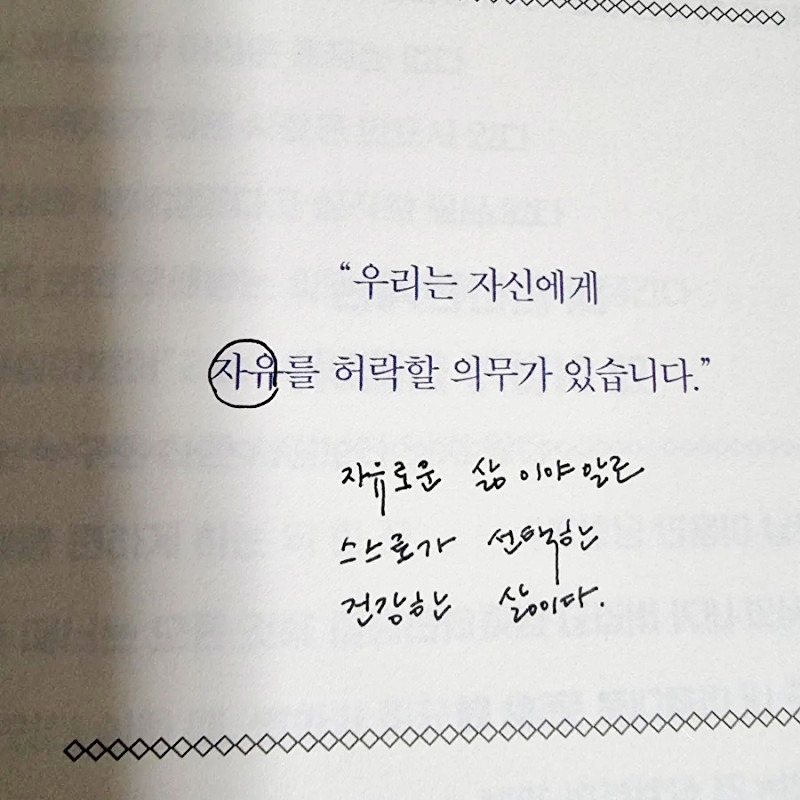 “우리는 자신에게
자유를 허락할 의무가 있습니다.”
자유로운 삶이야 말로
스스로가 선택한
건강한 삶이다.